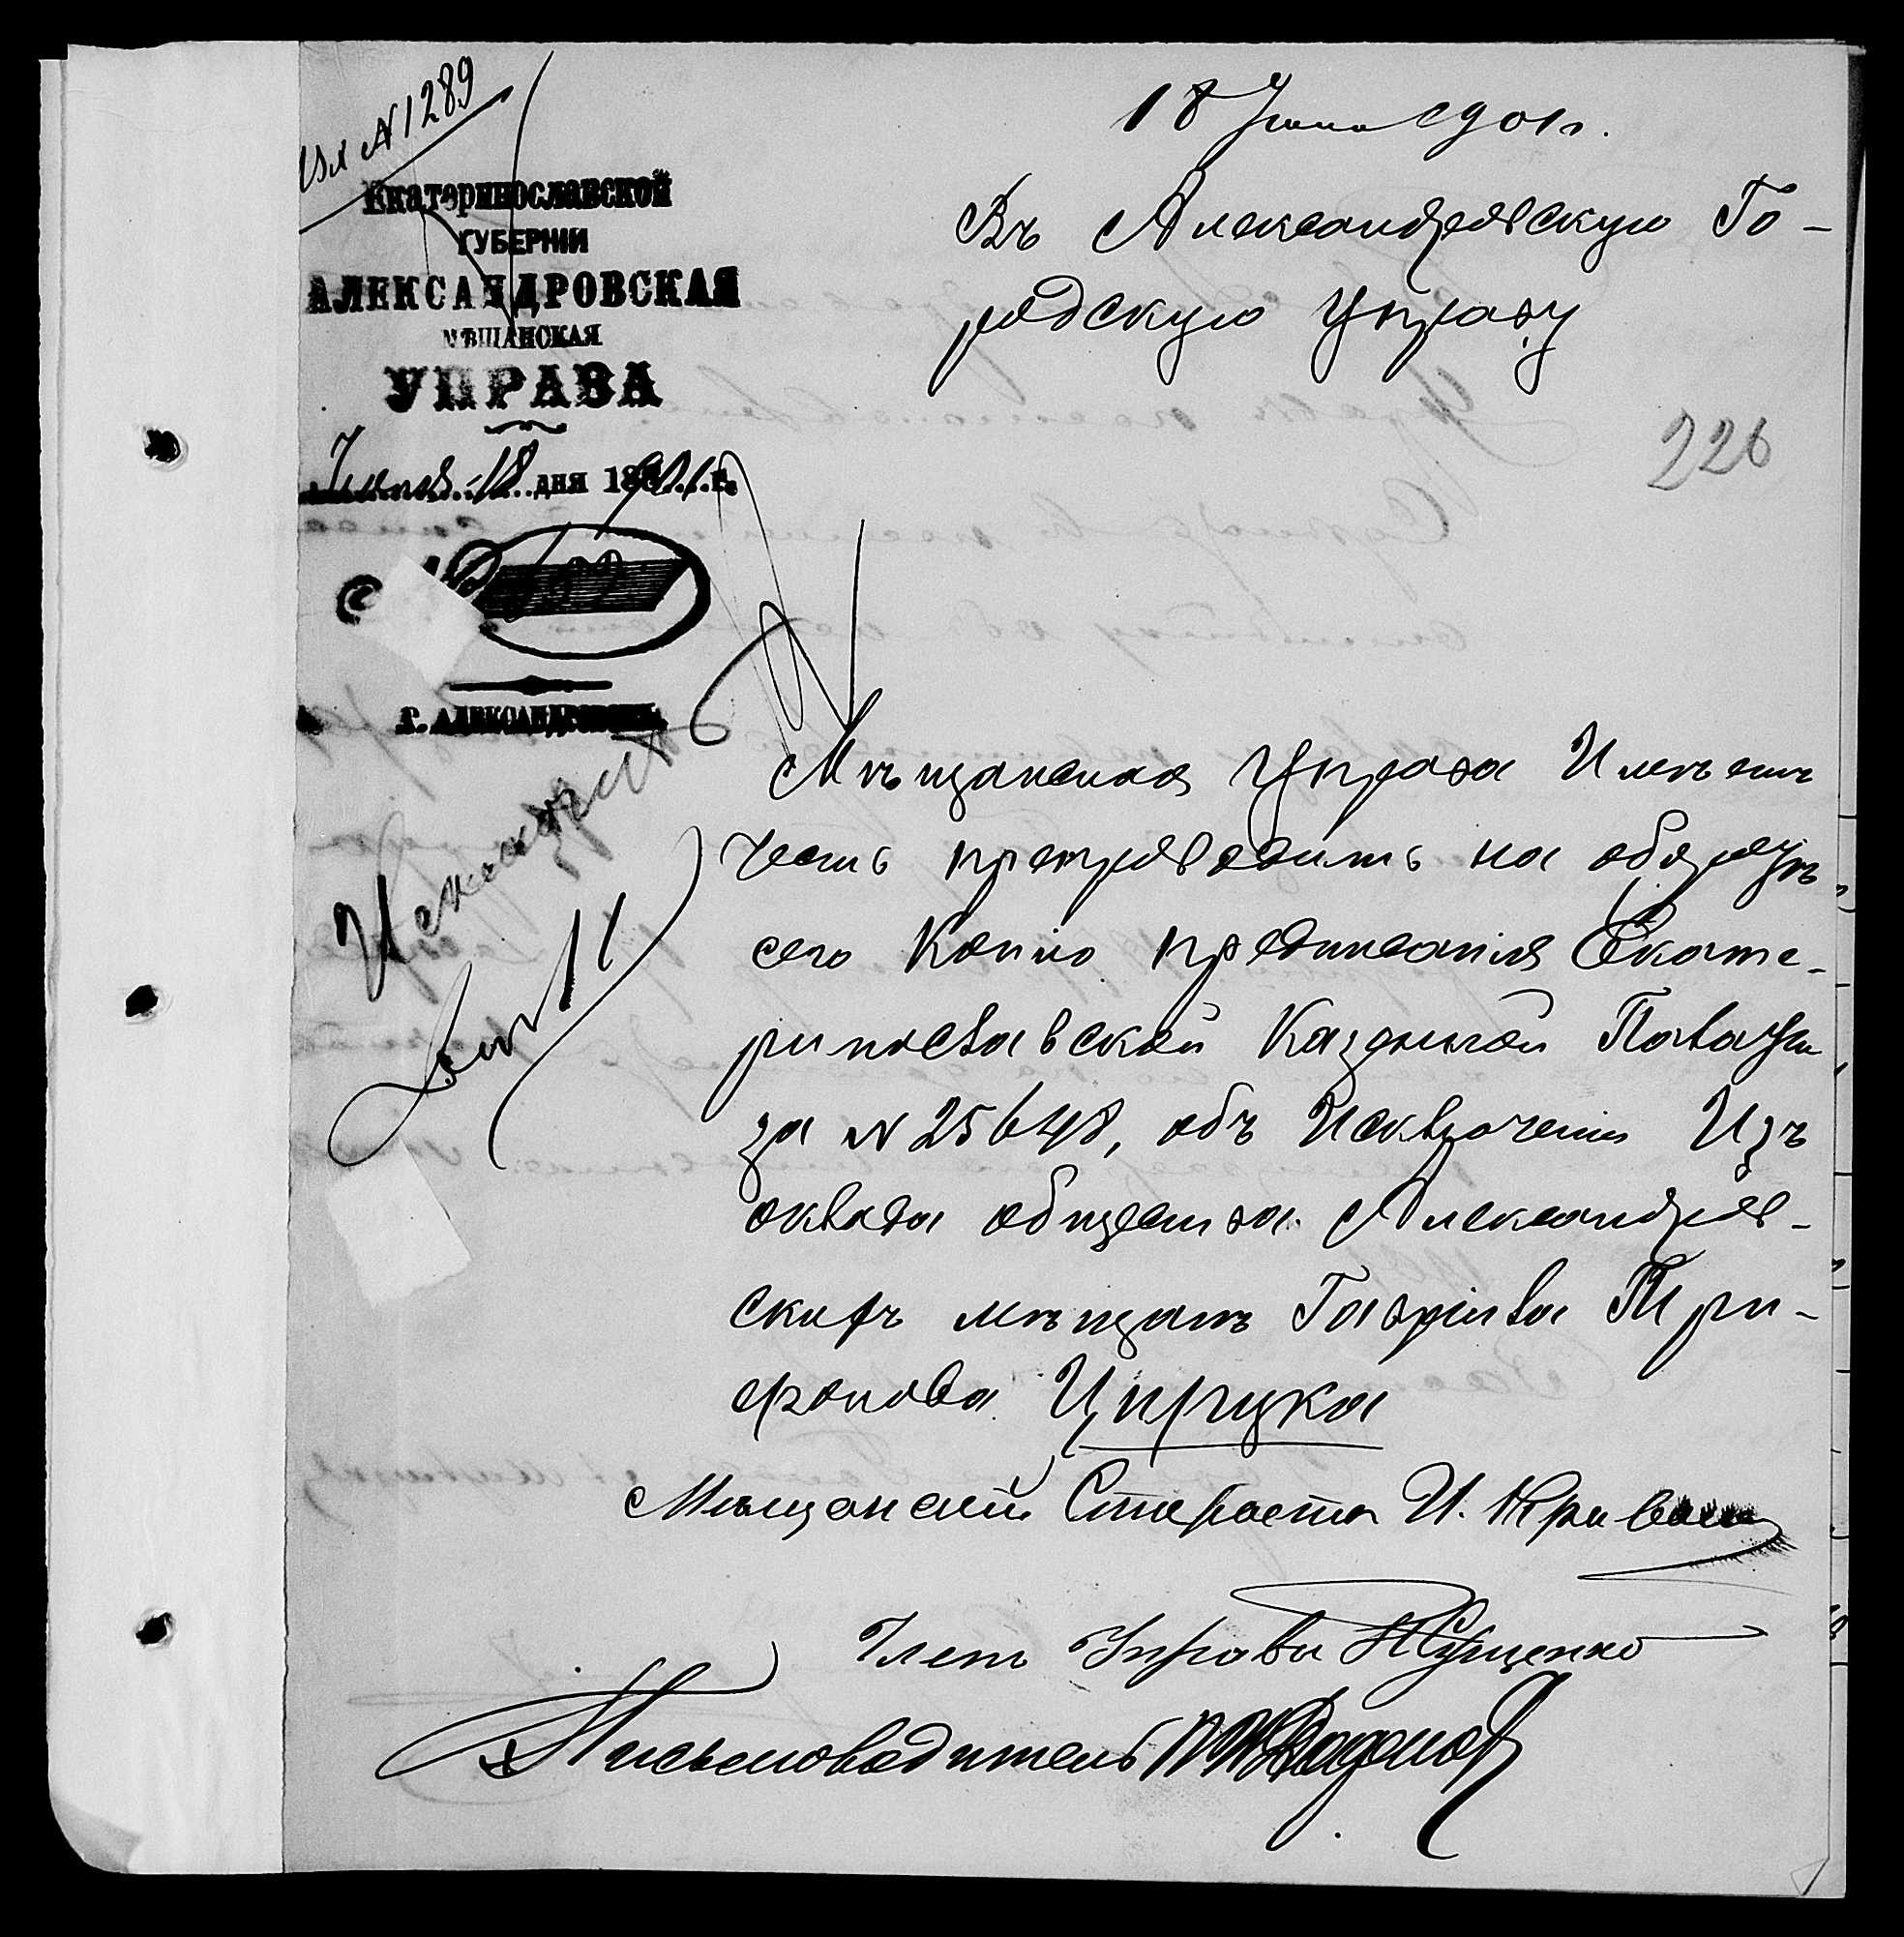 Вх №1289
Екатеринославской
ГУБЕРНІИ
АЛЕКСАНДРОВСКАЯ
МѢЩАНСКАЯ
УПРАВА
Іюня 18 дня 1901 г.
г. АЛЕКСАНДРОВСКЪ
18 Іюня 901 г.
Въ Александровскую Го-
родскую Управу
226
Мѣщанская Управа Имѣетъ
честь препроводить на оборотѣ
сего Копію предписанія Екате-
ринославской Казенной Палаты
за №25648, объ Исключеніи Изъ
оклада общества Александров-
скихъ мѣщанъ Гавріила Три-
фонова Ципуцка
Мѣщанскій Староста И.
Членъ Управы
Письмоводитель